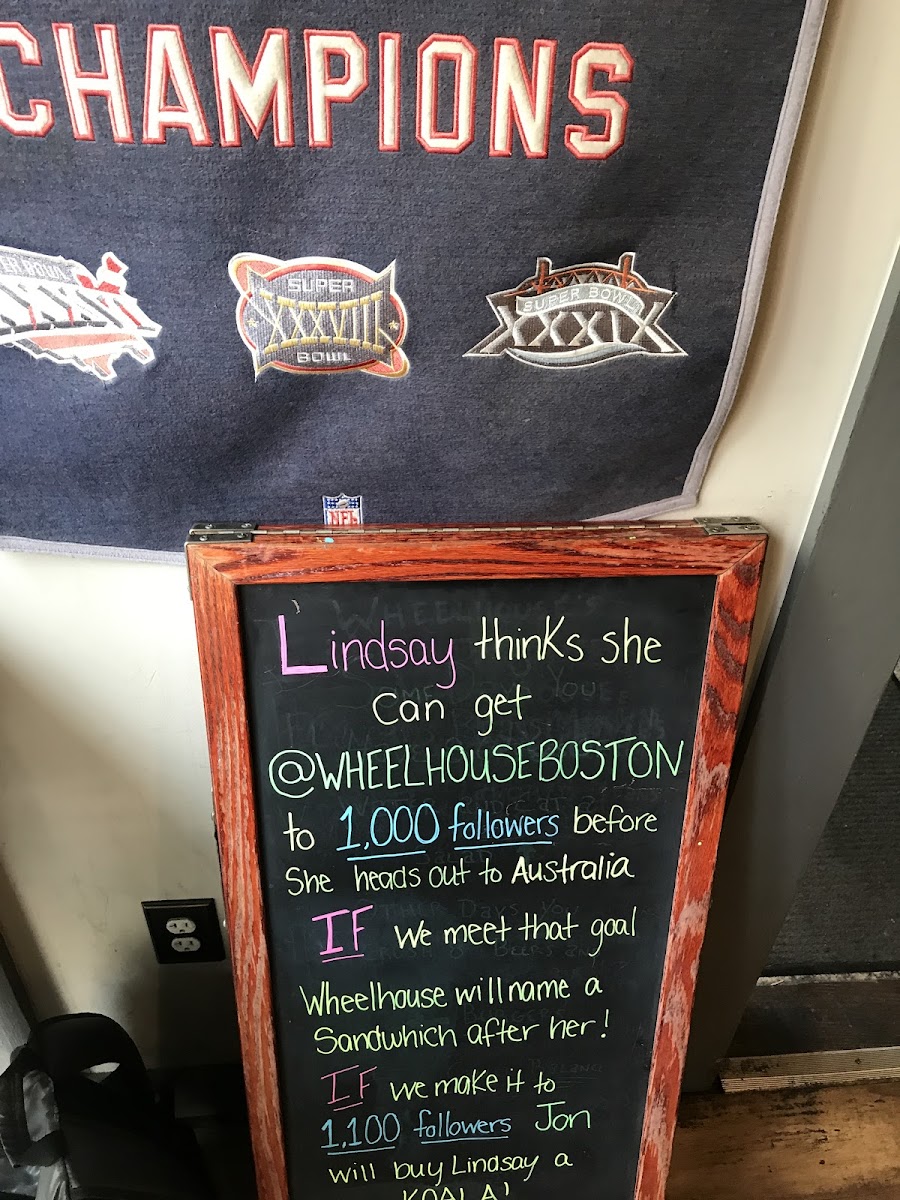 CHAMPIONS
SUPER
XXXVIII
BOWL
SUPER BOWL
XXXIX
NFL
Lindsay thinks she
can get
@WHEELHOUSEBOSTON
to 1,000 followers before
She heads out to Australia
IF we meet that goal
Wheelhouse will name a
Sandwhich after her!
IF we make it to
1,100 followers Jon
will buy Lindsay a
KOALA!